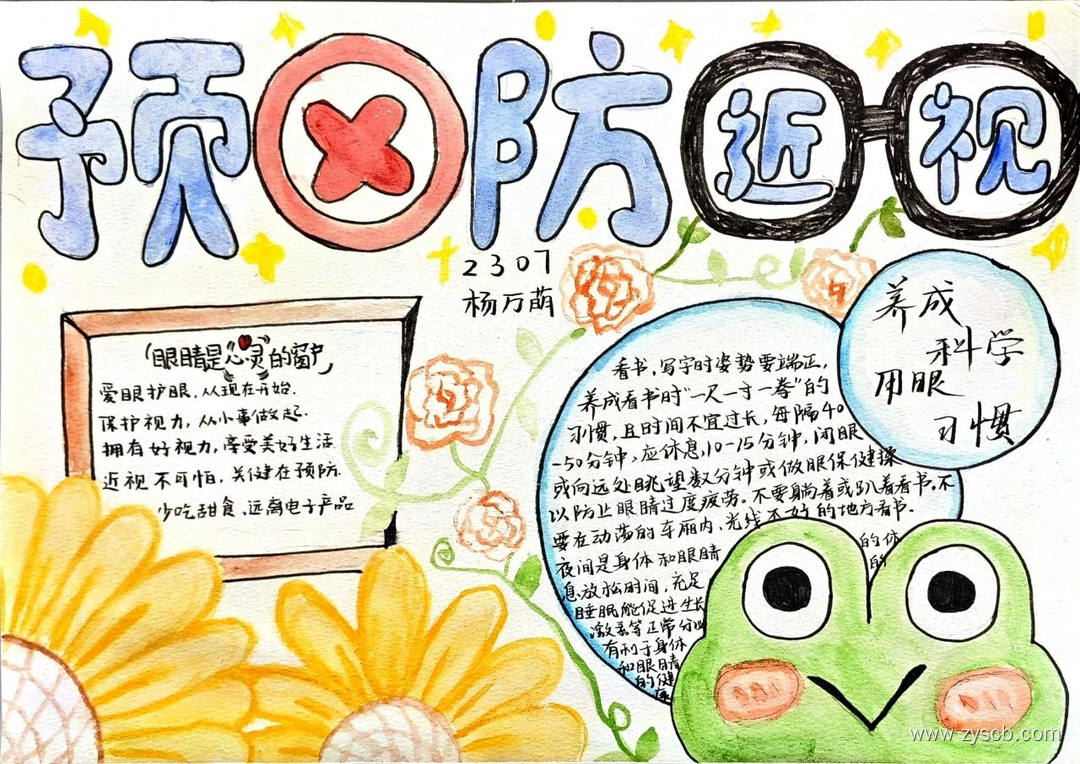 预防近视
2307
杨万萌
“眼睛是心灵的窗户”
爱眼护眼，从现在开始.
保护视力，从小事做起.
拥有好视力，享受美好生活
近视不可怕，关健在预防.
少吃甜食、远离电子产品
养成
科学
用眼
习惯
看书，写字时姿势要端正，
养成看书时“一尺一寸一拳”的
习惯，且时间不宜过长，每隔40
-50分钟，应休息，10-15分钟，闭眼
或向远处眺望数分钟或做眼保健操
以防止眼睛过度疲劳。不要躺着或趴着看书。不
要在动荡的车厢内、光线不好的地方看书.
夜间是身体和眼睛的休
息放松时间，充足的
睡眠能促进生长
激素等正常分泌
有利于身体
和眼睛
的健
康
www.zyscb.com